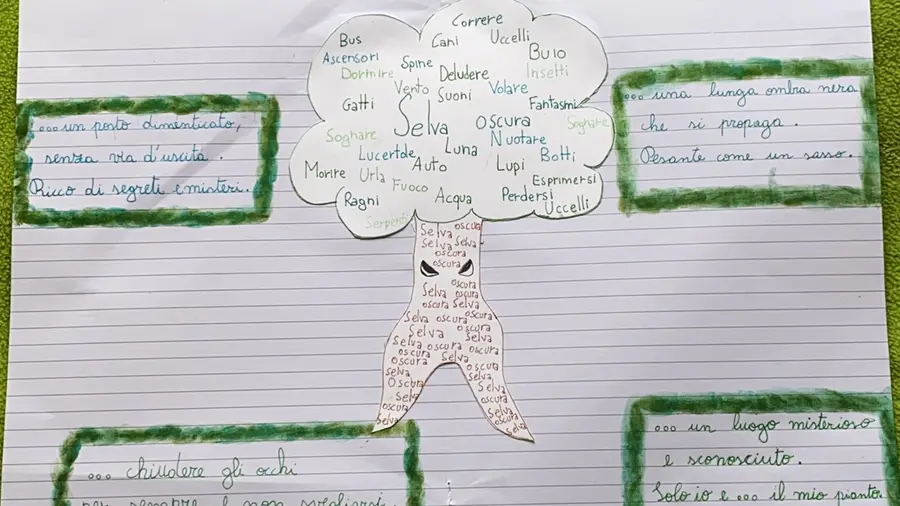 ... un posto dimenticato,
senza via d'uscita.
Ricco di segreti e misteri.
Correre
Bus
Cani
Uccelli
Ascensori
Spine
Buio
Dormire
Deludere
Insetti
Vento
Suoni
Volare
Gatti
Fantasmi
Selva oscura
Sognare
Sognare
Nuotare
Lucertole
Luna
Botti
Auto
Lupi
Morire
Urla
Fuoco
Esprimersi
Ragni
Acqua
Perdersi
Uccelli
Serpenti
... una lunga ombra nera
che si propaga.
Pesante come un sasso.
Selva oscura
Selva Selva
oscura
oscura
oscura
Selva oscura
oscura Selva
Selva oscura oscura
Selva oscura
Selva
Selva oscura oscura
oscura Selva
oscura oscura
Selva Selva
Oscura Selva
Selva oscura
oscura Selva
Selva oscura
Selva
... chiudere gli occhi
per sempre e non svegliarsi
... un luogo misterioso
e sconosciuto.
Solo io e ... il mio pianto.